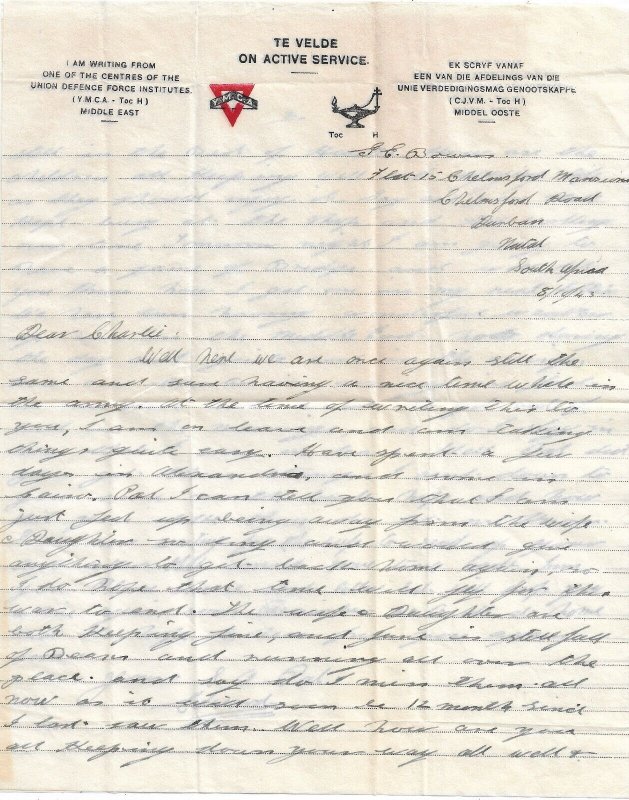 TE VELDE
ON ACTIVE SERVICE.
I AM WRITING FROM
ONE OF THE CENTRES OF THE
UNION DEFENCE FORCE INSTITUTES.
(Y.M.C.A. - Toc H)
MIDDLE EAST
Y.M.C.A.
Toc H
EK SCRYF VANAF
EEN VAN DIE AFDELINGS VAN DIE
UNIE VERDEDIGINGSMAG GENOOTSKAPPE
(C.J.V.M. - Toc H)
MIDDEL OOSTE
Flat 15 Chelmsford Mansions
Chelmsford Road
Durban
Natal
South Africa
8/1/43
Dear Charlie.
Well here we are once again still the
same and sure having a nice time while in
the army. At the time of writing this to
you, I am on leave and am taking
things quite easy. Have spent a few
days in Alexandria, and some in
Cairo. But I can tell you that I am
just fed up being away from the wife
& Daughter so long and would give
anything to get back home again, so
I do hope that time will fly for this
war to end. The wife & Daughter are
both keeping fine, and June is still full
of Beans and running all over the
place. and say do I miss them all
now as it will soon be 12 month since
I last saw them. Well how are you
all keeping down your way all well &